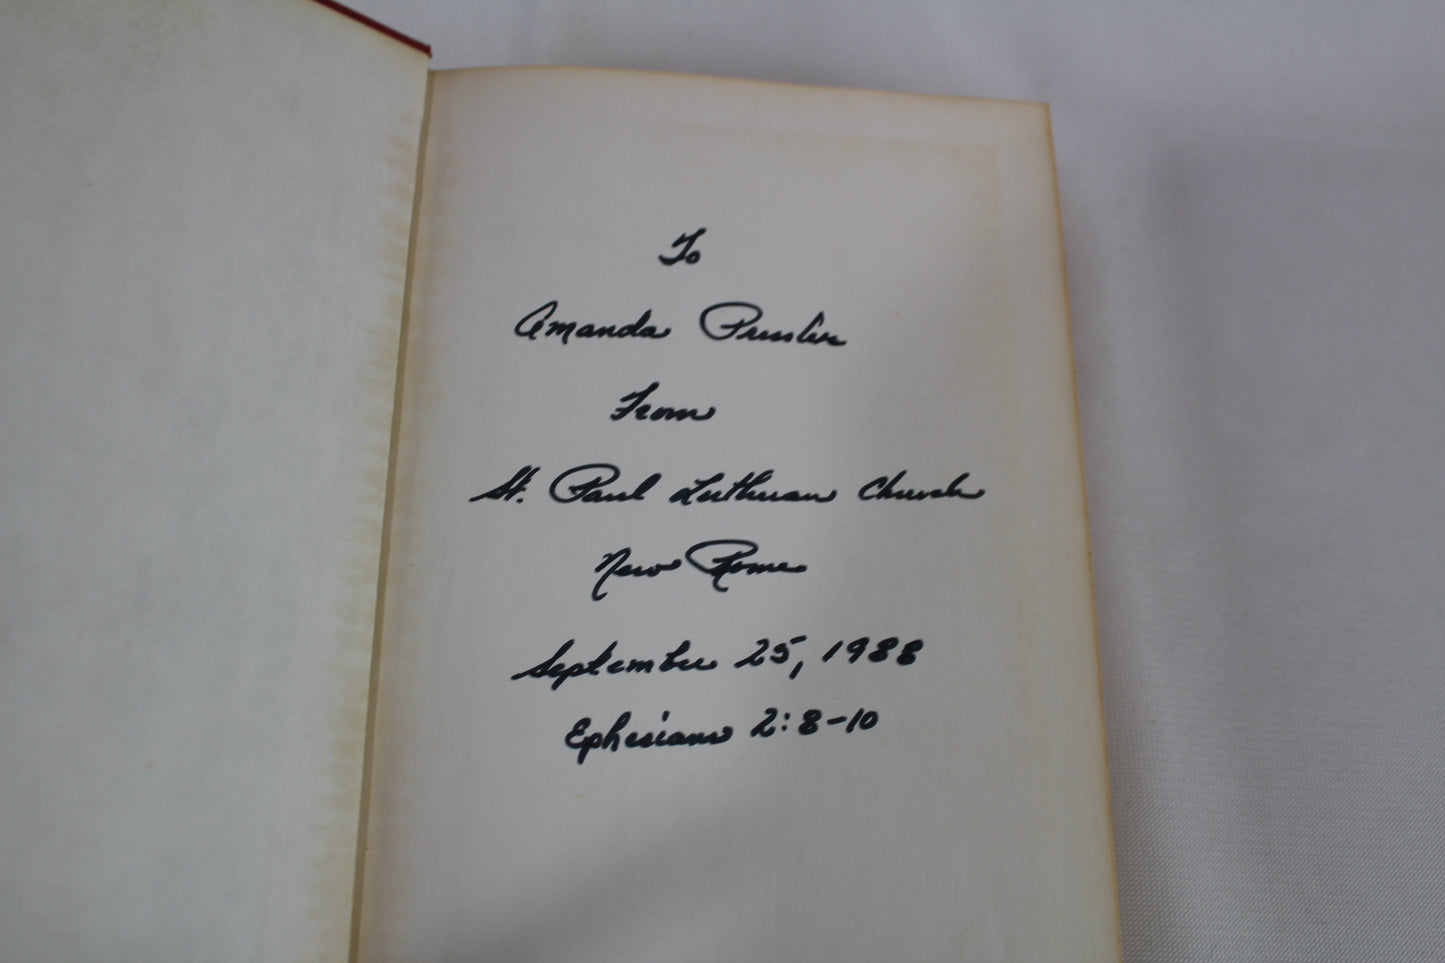 To
Amanda Pressler
From
St. Paul Lutheran Church
New Rome
September 25, 1988
Ephesians 2:8-10